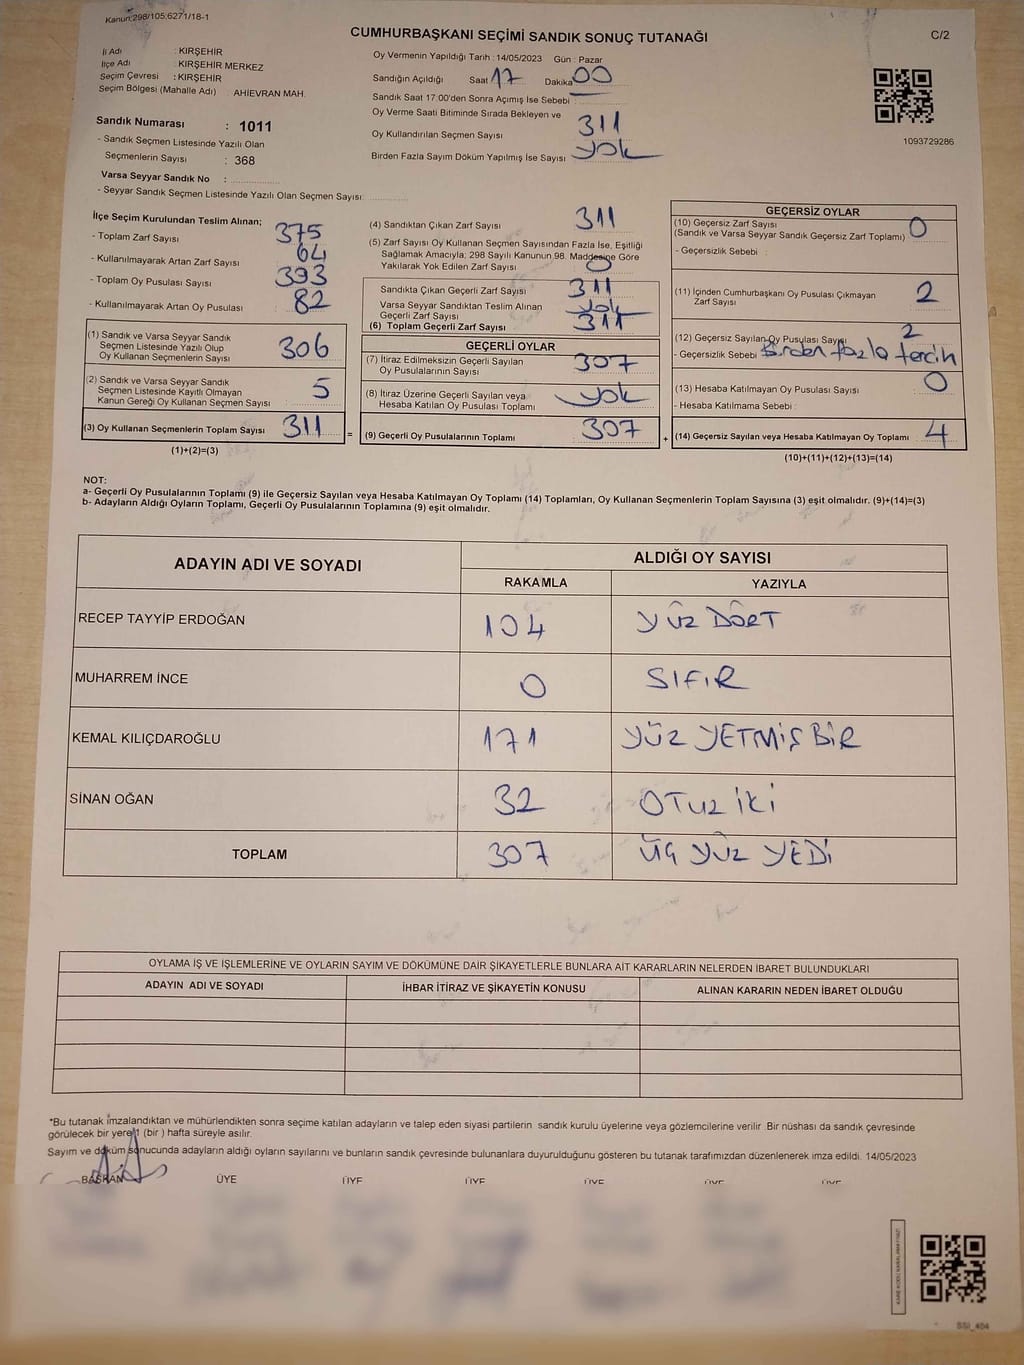 Kanun:298/105;6271/18-1
CUMHURBAŞKANI SEÇİMİ SANDIK SONUÇ TUTANAĞI
C/2
İl Adı : KIRŞEHİR
İlçe Adı : KIRŞEHİR MERKEZ
Seçim Çevresi : KIRŞEHİR
Seçim Bölgesi (Mahalle Adı) AHİEVRAN MAH.
Oy Vermenin Yapıldığı Tarih : 14/05/2023 Gün : Pazar
Sandığın Açıldığı Saat 17 Dakika 00
Sandık Saat 17:00'den Sonra Açımış İse Sebebi :
Oy Verme Saati Bitiminde Sırada Bekleyen ve
Oy Kullandırılan Seçmen Sayısı 311
Birden Fazla Sayım Döküm Yapılmış İse Sayısı yok
1093729286
Sandık Numarası : 1011
- Sandık Seçmen Listesinde Yazılı Olan
Seçmenlerin Sayısı : 368
Varsa Seyyar Sandık No :
- Seyyar Sandık Seçmen Listesinde Yazılı Olan Seçmen Sayısı:
İlçe Seçim Kurulundan Teslim Alınan;
- Toplam Zarf Sayısı 375
- Kullanılmayarak Artan Zarf Sayısı 64
- Toplam Oy Pusulası Sayısı 393
- Kullanılmayarak Artan Oy Pusulası 82
(1) Sandık ve Varsa Seyyar Sandık
Seçmen Listesinde Yazılı Olup
Oy Kullanan Seçmenlerin Sayısı 306
(2) Sandık ve Varsa Seyyar Sandık
Seçmen Listesinde Kayıtlı Olmayan
Kanun Gereği Oy Kullanan Seçmen Sayısı 5
(3) Oy Kullanan Seçmenlerin Toplam Sayısı 311 =
(1)+(2)=(3)
(4) Sandıktan Çıkan Zarf Sayısı 311
(5) Zarf Sayısı Oy Kullanan Seçmen Sayısından Fazla İse, Eşitliği
Sağlamak Amacıyla; 298 Sayılı Kanunun 98. Maddesine Göre
Yakılarak Yok Edilen Zarf Sayısı 0
Sandıkta Çıkan Geçerli Zarf Sayısı 311
Varsa Seyyar Sandıktan Teslim Alınan
Geçerli Zarf Sayısı yok
(6) Toplam Geçerli Zarf Sayısı 311
GEÇERLİ OYLAR
(7) İtiraz Edilmeksizin Geçerli Sayılan
Oy Pusulalarının Sayısı 307
(8) İtiraz Üzerine Geçerli Sayılan veya
Hesaba Katılan Oy Pusulası Toplamı yok
(9) Geçerli Oy Pusulalarının Toplamı 307 +
GEÇERSİZ OYLAR
(10) Geçersiz Zarf Sayısı
(Sandık ve Varsa Seyyar Sandık Geçersiz Zarf Toplamı) 0
- Geçersizlik Sebebi :
(11) İçinden Cumhurbaşkanı Oy Pusulası Çıkmayan
Zarf Sayısı 2
(12) Geçersiz Sayılan Oy Pusulası Sayısı 2
- Geçersizlik Sebebi Birden fazla tercih
(13) Hesaba Katılmayan Oy Pusulası Sayısı 0
- Hesaba Katılmama Sebebi :
(14) Geçersiz Sayılan veya Hesaba Katılmayan Oy Toplamı 4
(10)+(11)+(12)+(13)=(14)
NOT:
a- Geçerli Oy Pusulalarının Toplamı (9) ile Geçersiz Sayılan veya Hesaba Katılmayan Oy Toplamı (14) Toplamları, Oy Kullanan Seçmenlerin Toplam Sayısına (3) eşit olmalıdır. (9)+(14)=(3)
b- Adayların Aldığı Oyların Toplamı, Geçerli Oy Pusulalarının Toplamına (9) eşit olmalıdır.
ADAYIN ADI VE SOYADI ALDIĞI OY SAYISI
RAKAMLA YAZIYLA
RECEP TAYYİP ERDOĞAN 104 YÜZ DÖRT
MUHARREM İNCE 0 SIFIR
KEMAL KILIÇDAROĞLU 171 YÜZ YETMİŞ BİR
SİNAN OĞAN 32 OTUZ İKİ
TOPLAM 307 ÜÇ YÜZ YEDİ
OYLAMA İŞ VE İŞLEMLERİNE VE OYLARIN SAYIM VE DÖKÜMÜNE DAİR ŞİKAYETLERLE BUNLARA AİT KARARLARIN NELERDEN İBARET BULUNDUKLARI
ADAYIN ADI VE SOYADI İHBAR İTİRAZ VE ŞİKAYETİN KONUSU ALINAN KARARIN NEDEN İBARET OLDUĞU
*Bu tutanak imzalandıktan ve mühürlendikten sonra seçime katılan adayların ve talep eden siyasi partilerin sandık kurulu üyelerine veya gözlemcilerine verilir .Bir nüshası da sandık çevresinde
görülecek bir yere 1 (bir ) hafta süreyle asılır.
Sayım ve döküm sonucunda adayların aldığı oyların sayılarını ve bunların sandık çevresinde bulunanlara duyurulduğunu gösteren bu tutanak tarafımızdan düzenlenerek imza edildi. 14/05/2023
BAŞKAN ÜYE ÜYE ÜYE ÜYE ÜYE ÜYE
SSI_404